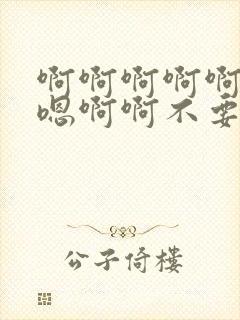 啊啊啊啊啊
嗯啊啊不要
公子倚楼